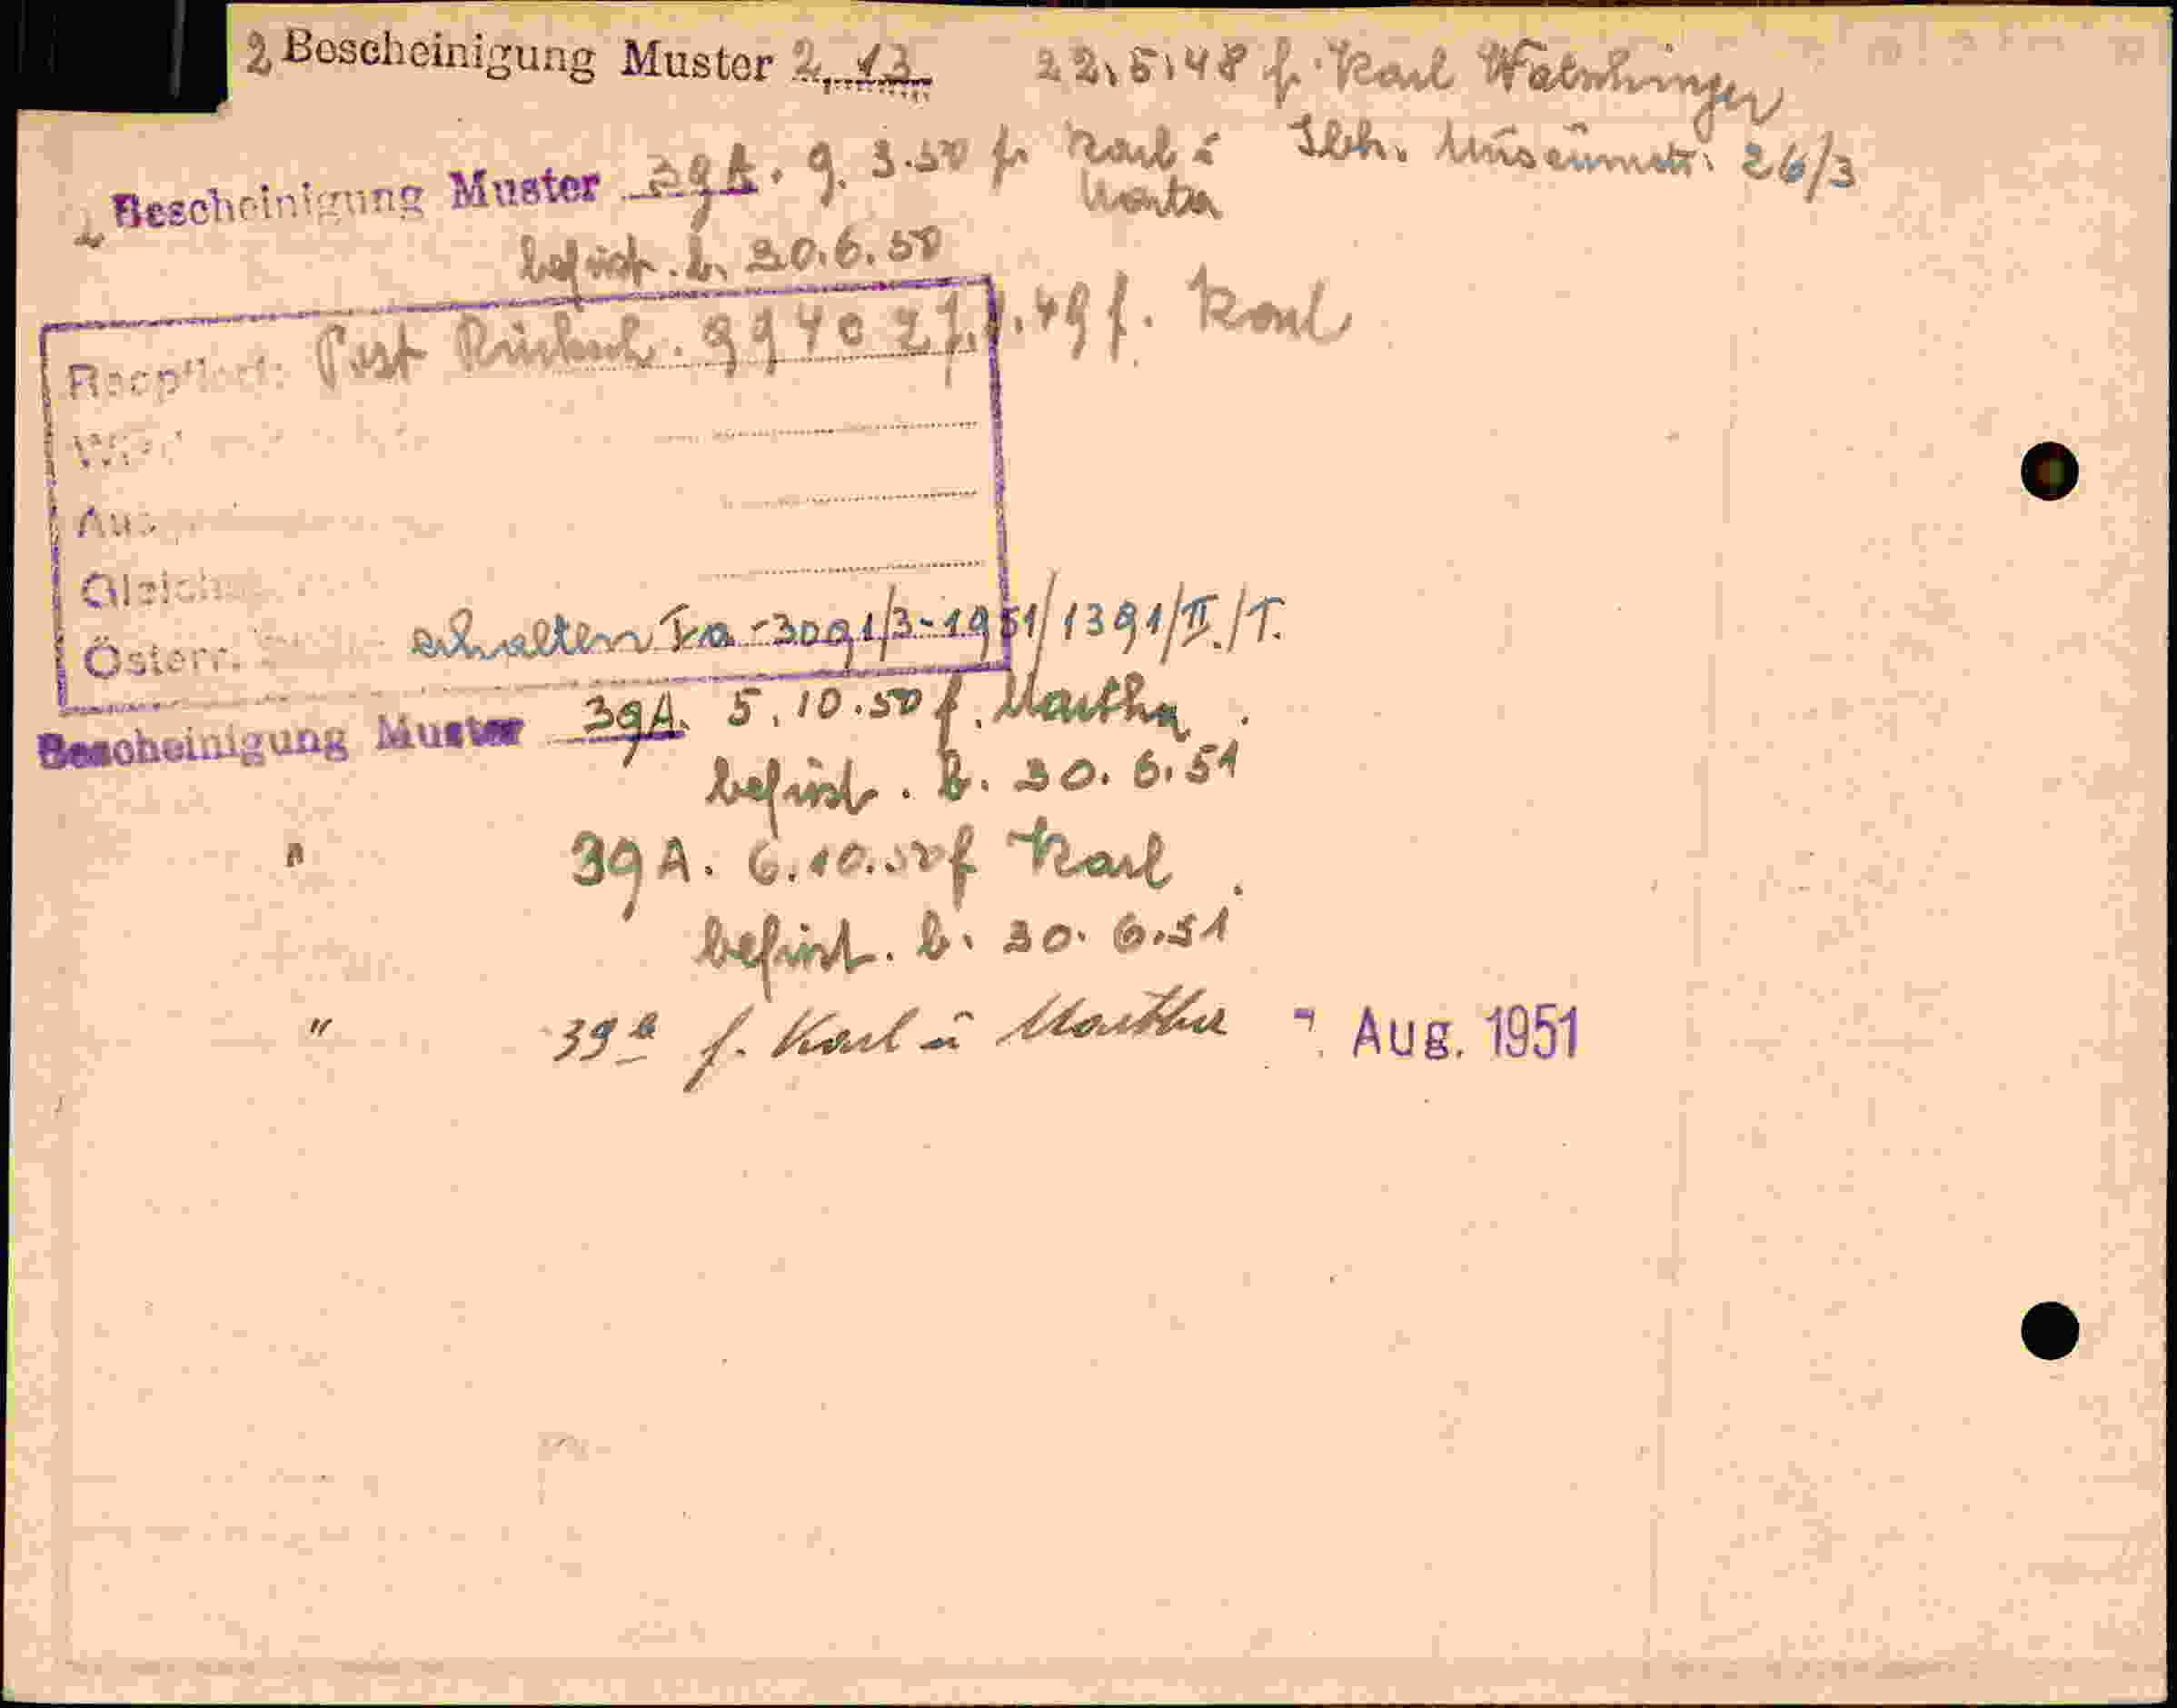 2 Bescheinigung Muster 2, 13 22.5.48 f. Karl Watschinger
Bescheinigung Muster 39A. 9. 3.50 f. Karl u Ibk. Museumstr. 26/3
Martha
befrist. b. 30.6.50
Post Rücksch. 9940 27. .49 f. Karl
Gleich
Österr. erhalten Ia-3091/3-1951/1391/II./T.
Bescheinigung Muster 39A. 5.10.50 f. Martha
befrist. b. 30.6.51
" 39A. 6.10.50 f Karl
befrist. b. 30.6.51
" 39a f. Karl u Martha Aug. 1951